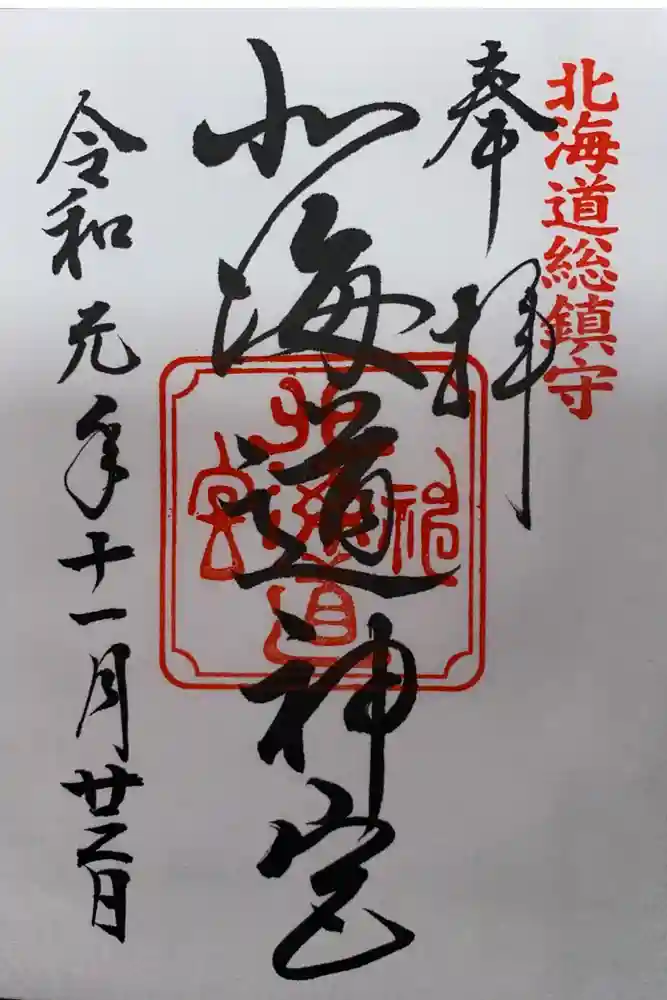 北海道総鎮守
奉拝
北海道神宮
北海道神宮
令和元年十一月廿二日